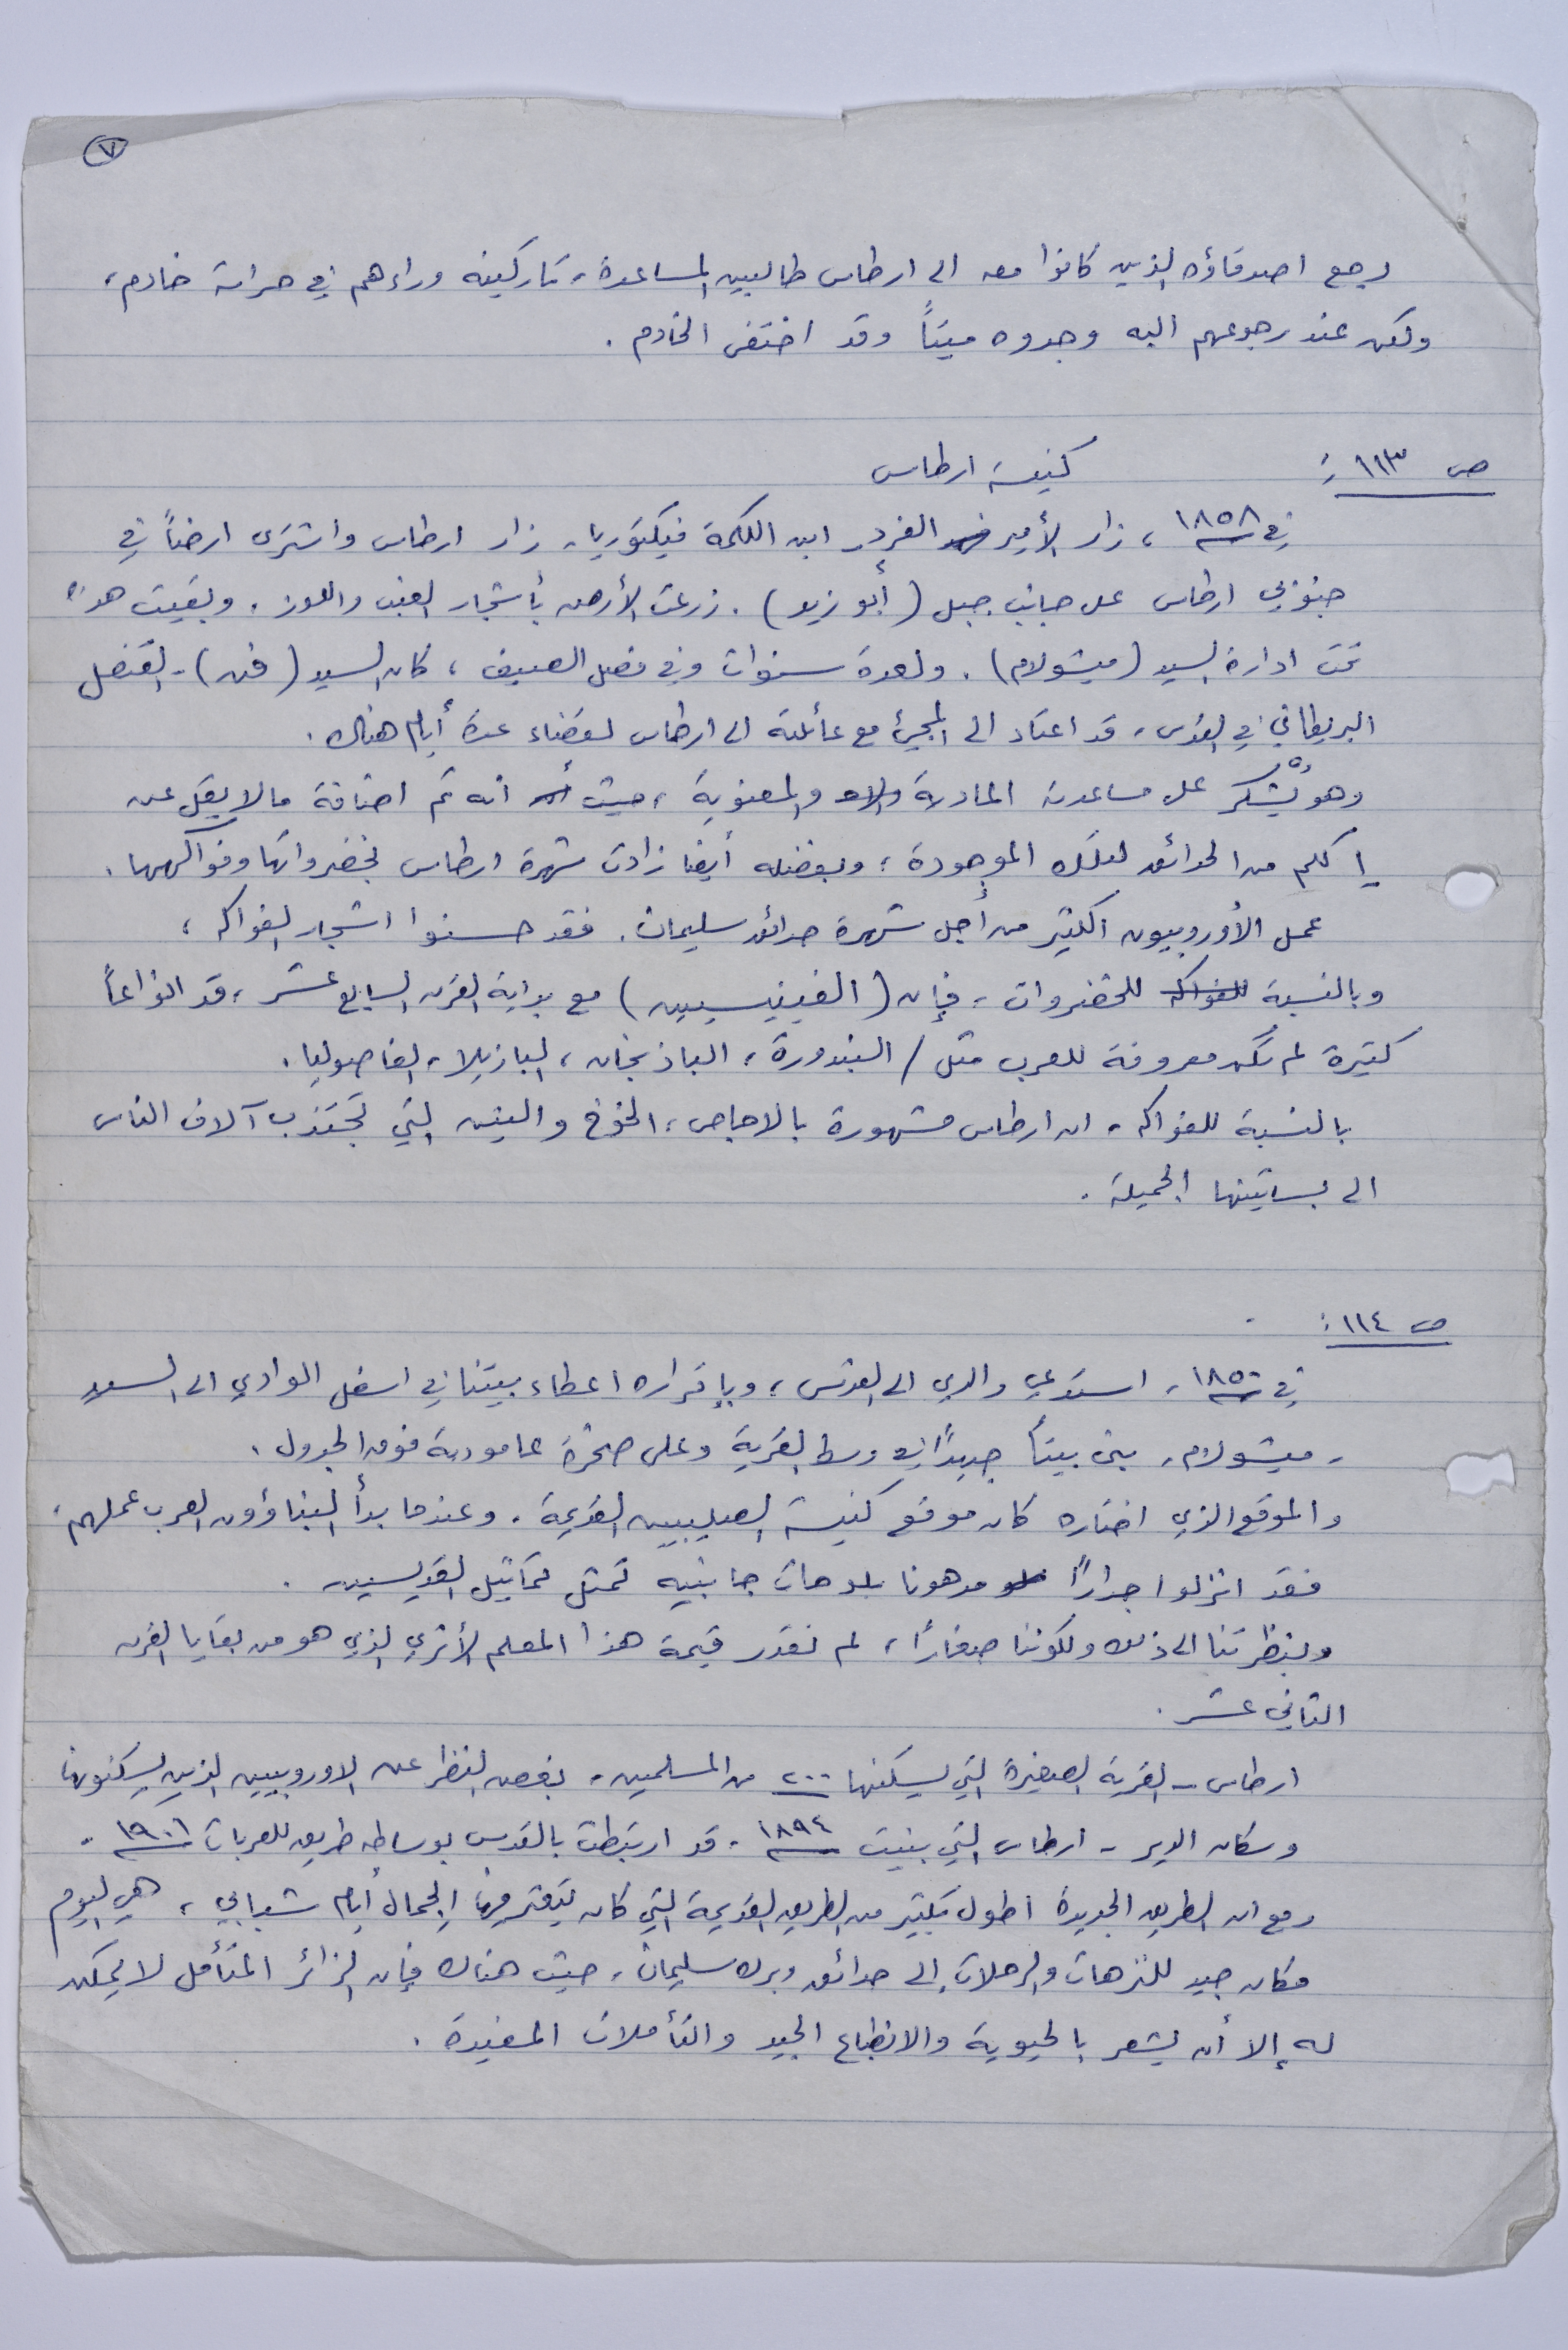 ٧
رجع اصدقاؤه الذين كانوا معه الى ارطاس طالبين المساعدة، تاركينه وراءهم في حراسة خادم،
ولكن عند رجوعهم اليه وجدوه ميتاً وقد اختفى الخادم.
ص ١١٣: كنيسة ارطاس
في ١٨٥٨، زار الأمير الفرد، ابن الملكة فيكتوريا، زار ارطاس واشترى ارضاً في
جنوبي ارطاس على جانب جبل (أبو زيد). زرعت الأرض بأشجار العنب واللوز، وبقيت هذه
تحت ادارة السيد (ميشولام). ولعدة سنوات وفي فصل الصيف، كان السيد (فن) - القنصل
البريطاني في القدس، قد اعتاد الى المجيئ مع عائلته الى ارطاس لقضاء عدة أيام هناك.
وهو يُشكر على مساعدته المادية والمعنوية، حيث انه تم اضافة ما لا يقل عن
إكلم من الحدائق لتلك الموجودة؛ وبفضله أيضا زادت شهرة ارطاس بخضرواتها وفواكهها.
عمل الأوروبيون الكثير من أجل شهرة حدائق سليمان. فقد حسنوا اشجار الفواكه،
وبالنسبة للفواكه للخضروات، فإن (الفينيسيين) مع بداية القرن السابع عشر، قد انواعاً
كثيرة لم تكن معروفة للعرب مثل / البندورة، الباذنجان، البازيلا، الفاصوليا.
بالنسبة للفواكه، ان ارطاس مشهورة بالاجاص، الخوخ والتين التي تجتذب آلاف الناس
الى بساتينها الجميلة.
ص ١١٤:
في ١٨٥٠، استدعي والدي الى القدس، وبإقراره اعطاء بيتنا في اسفل الوادي الى السيد
- ميشولام، بنى بيتاً جديداً في وسط القرية وعلى صخرة عامودية فوق الجدول.
والموقع الذي اختاره كان موقع كنيسة الصليبيين القديمة. وعندما بدأ البناؤون العرب عملهم،
فقد انزلوا جداراً مدهونا بلوحات جانبيه تمثل تماثيل القديسين.
وبنظرتنا الى ذلك ولكوننا صغاراً، لم نقدر قيمة هذا المعلم الأثري الذي هو من بقايا القرن
الثاني عشر.
ارطاس - القرية الصغيرة التي يسكنها ٢٠٠ من المسلمين، بغض النظر عن الاوروبيين الذين يسكنونها
وسكان الدير - ارطاس التي بنيت ١٨٩٤، قد ارتبطت بالقدس بوساطه طريق للعربات ١٩٠٦.
ومع ان الطريق الجديدة اطول بكثير من الطريق القديمة التي كان يتعثر فيها الجمال أيام شبابي، هي اليوم
مكان جيد للنزهات والرحلات إلى حدائق وبرك سليمان، حيث هناك فإن الزائر المتأمل لا يمكن
له إلا أن يشعر بالحيوية والانطباع الجيد والتأملات المفيدة.